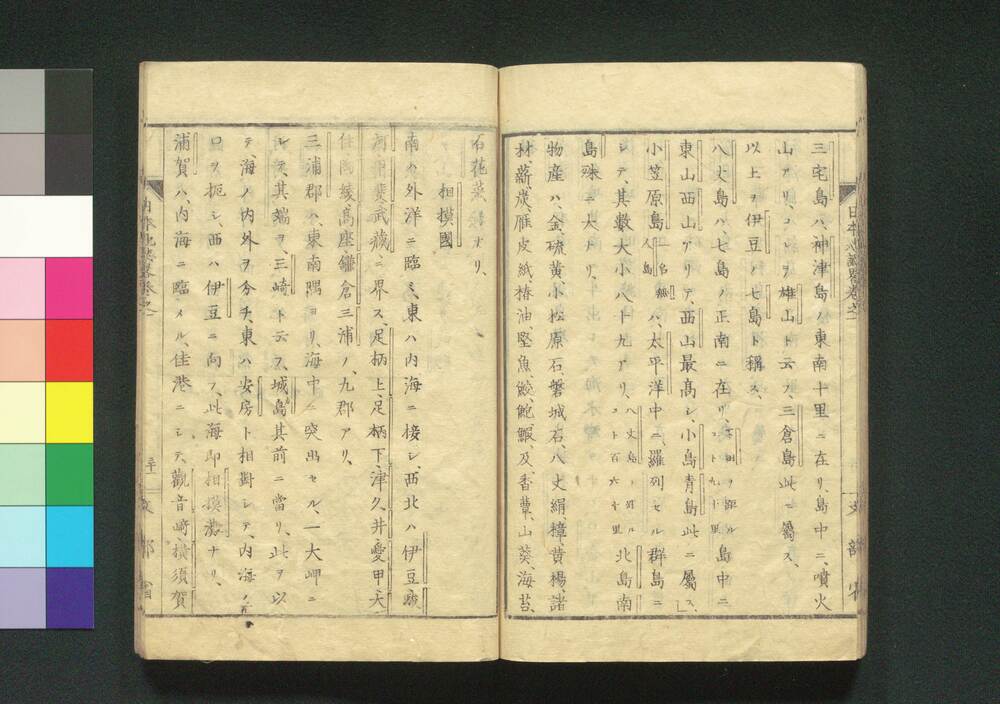 三宅島ハ、神津島ノ東南十里ニ在リ、島中ニ、噴火
山アリ、コレヲ雄山ト云フ、三倉島此ニ屬ス、
以上ヲ伊豆ノ七島ト稱ス、
八丈島ハ、七島ノ正南ニ在リ、下田ヲ距ルコト九十里島中ニ
東山西山アリテ、西山最高シ、小島青島此ニ屬ス、
小笠原島一名無人島ハ、太平洋中ニ、羅列セル群島ニ
シテ、其數大小八十九アリ、八丈島ヲ距ルコト百六十里北島南
島殊ニ大ナリ、
物産ハ、金、硫黄、小松原石、磐城石、八丈絹、樟、黄楊、諸
材、薪、炭、雁皮紙、椿油、堅魚、鮫、鮑、鰕、及香蕈、山葵、海苔、
石花菜等ナリ、
相摸國
南ハ外洋ニ臨ミ、東ハ内海ニ接シ、西北ハ伊豆駿
河甲斐武藏ニ界ス、足柄上、足柄下、津久井、愛甲、大
住、淘綾、高座、鎌倉、三浦ノ、九郡アリ、
三浦郡ハ、東南隅ヨリ、海中ニ突出セル、一大岬ニ
シテ、其端ヲ、三崎ト云フ、城島其前ニ當リ、此ヲ以
テ海ノ内外ヲ分チ、東ハ安房ト相對シテ、内海ノ
口ヲ扼シ、西ハ伊豆ニ向フ、此海卽相摸灘ナリ、
浦賀ハ、内海ニ臨メル、佳港ニシテ、觀音崎、橫須賀
文部省